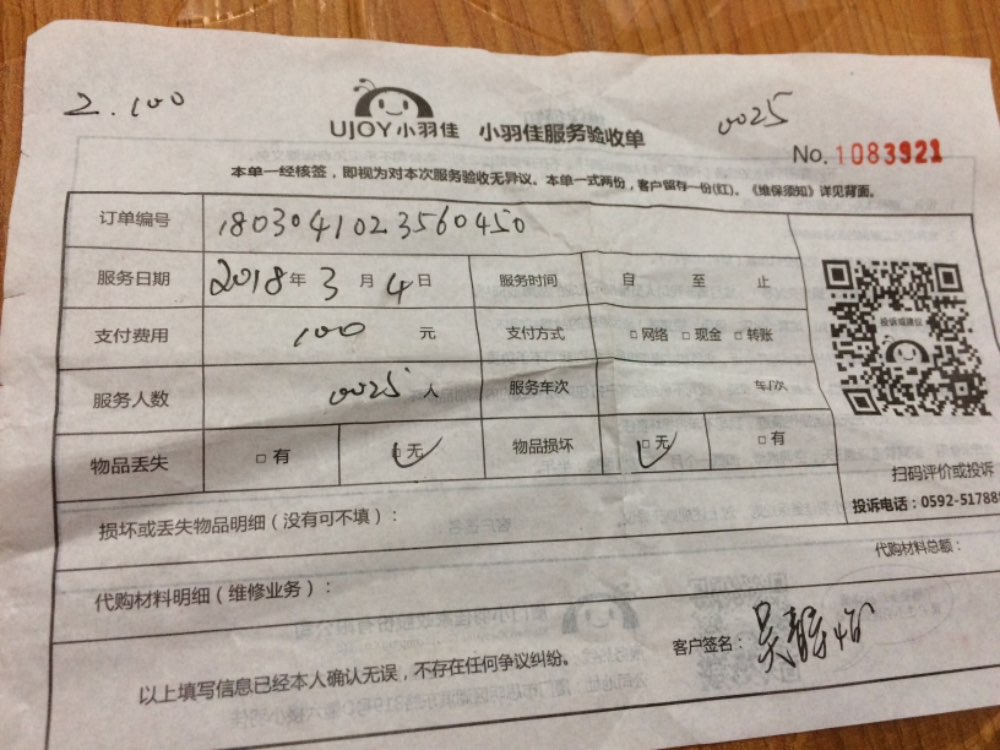 2.100
0025
UJOY小羽佳 小羽佳服务验收单
No. 1083921
本单一经核签，即视为对本次服务验收无异议。本单一式两份，客户留存一份(红)。《维保须知》详见背面。
订单编号 1803041023560450
服务日期 2018年3月4日 服务时间 自 至 止
投诉或建议
支付费用 100 元 支付方式 □网络 □现金 □转账
服务人数 0025人 服务车次 车/次
物品丢失 □有 □无 物品损坏 □无 □有
扫码评价或投诉
投诉电话：0592-517885
损坏或丢失物品明细（没有可不填）：
代购材料总额：
代购材料明细（维修业务）：
客户签名：吴
以上填写信息已经本人确认无误，不存在任何争议纠纷。